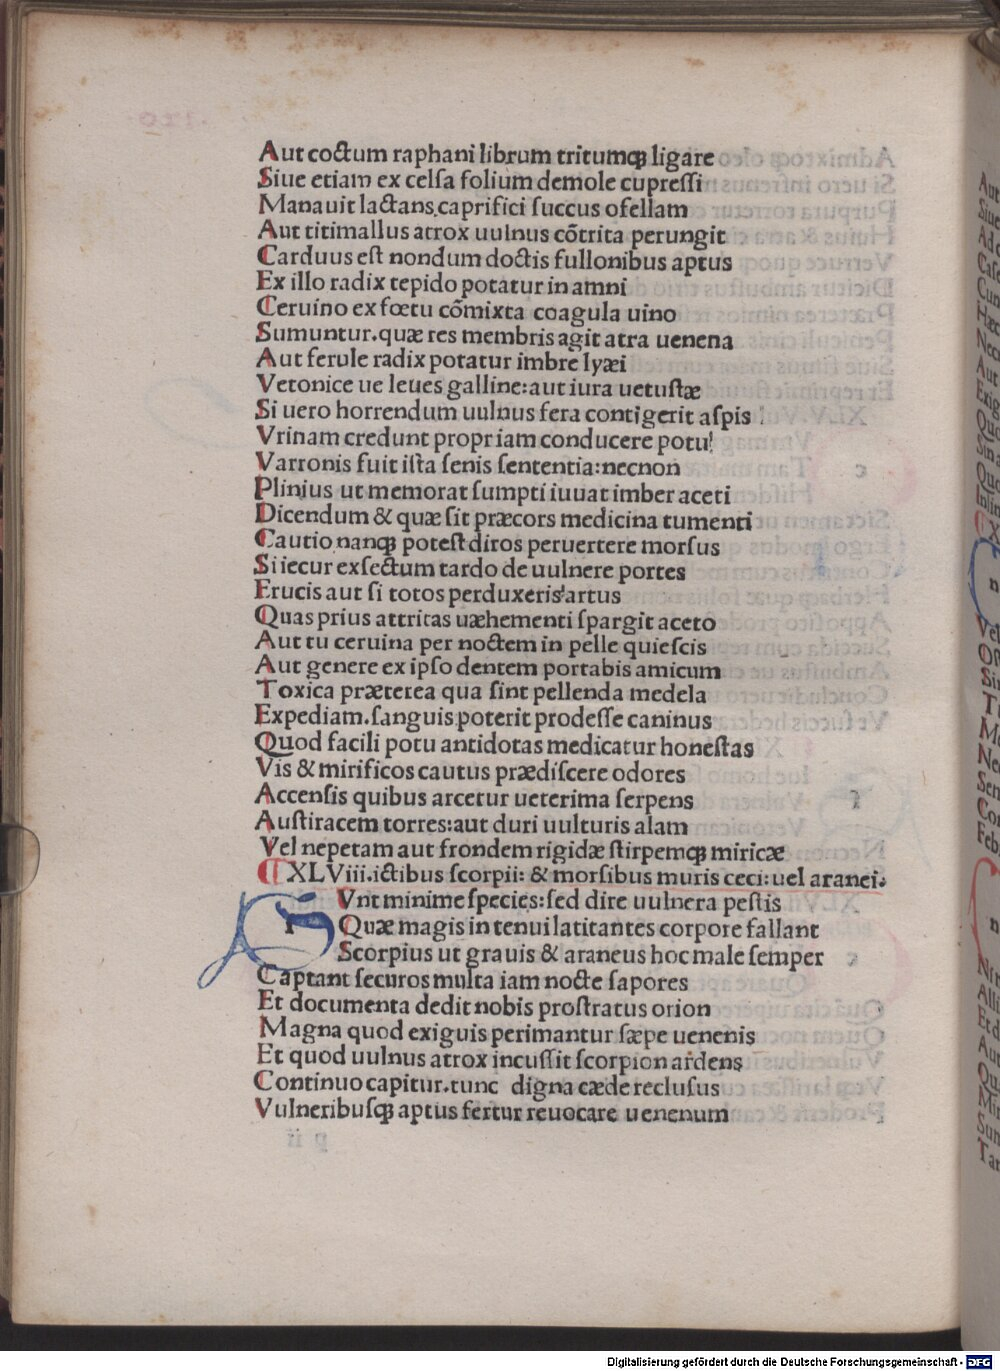 Aut coctum raphani librum tritumqꝫ ligare
Siue etiam ex celſa folium demole cupreſſi
Manauit lactans caprifici ſuccus ofellam
Aut titimallus atrox uulnus cõtrita perungit
Carduus eſt nondum doctis fullonibus aptus
Ex illo radix tepido potatur in amni
Ceruino ex fœtu cõmixta coagula uino
Sumuntur.quæ res membris agit atra uenena
Aut ferule radix potatur imbre lyæi
Vetonice ue leues galline:aut iura uetuſtæ
Si uero horrendum uulnus fera contigerit aſpis
Vrinam credunt propriam conducere potu
Varronis fuit iſta ſenis ſententia:necnon
Plinius ut memorat ſumpti iuuat imber aceti
Dicendum & quæ ſit præcors medicina tumenti
Cautio nanqꝫ poteſt diros peruertere morſus
Si iecur exſectum tardo de uulnere portes
Erucis aut ſi totos perduxeris artus
Quas prius attritas uæhementi ſpargit aceto
Aut tu ceruina per noctem in pelle quieſcis
Aut genere ex ipſo dentem portabis amicum
Toxica præterea qua ſint pellenda medela
Expediam.ſanguis poterit prodeſſe caninus
Quod facili potu antidotas medicatur honeſtas
Vis & mirificos cautus prædiſcere odores
Accenſis quibus arcetur ueterima ſerpens
Auſtiracem torres:aut duri uulturis alam
Vel nepetam aut frondem rigidæ ſtirpemqꝫ miricæ
XLViii.ictibus ſcorpii: & morſibus muris ceci:uel aranei.
SVnt minime ſpecies:ſed dire uulnera peſtis
Quæ magis in tenui latitantes corpore fallant
Scorpius ut grauis & araneus hoc male ſemper
Captant ſecuros multa iam nocte ſapores
Et documenta dedit nobis proſtratus orion
Magna quod exiguis perimantur ſæpe uenenis
Et quod uulnus atrox incuſſit ſcorpion ardens
Continuo capitur.tunc digna cæde recluſus
Vulneribuſqꝫ aptus fertur reuocare uenenum
Digitalisierung gefördert durch die Deutsche Forschungsgemeinschaft - DFG